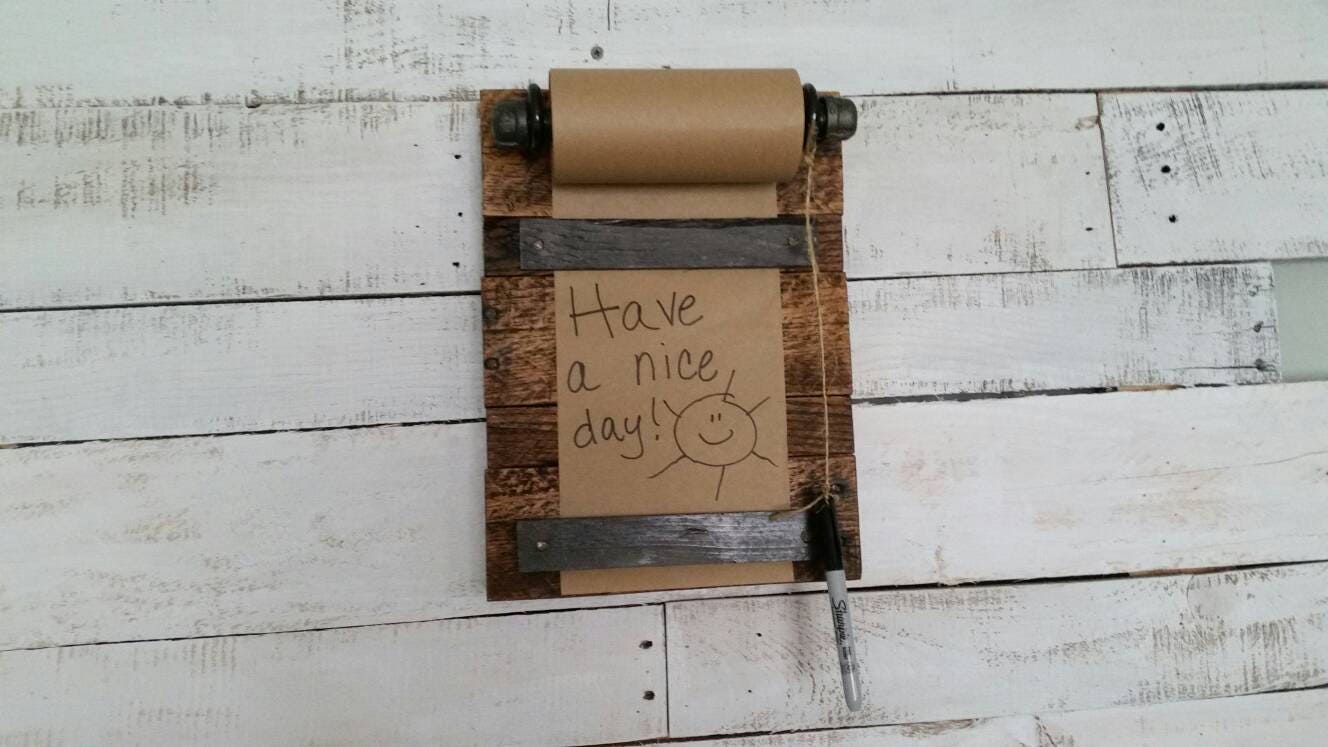 Have
a nice
day!
Sharpie